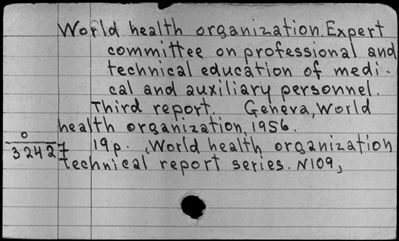 World health organization. Expert
committee on professional and
technical education of medi-
cal and auxiliary personnel.
Third report. Geneva, World
health organization, 1956.
19p. (World health organization
technical report series. N109)
0
32427